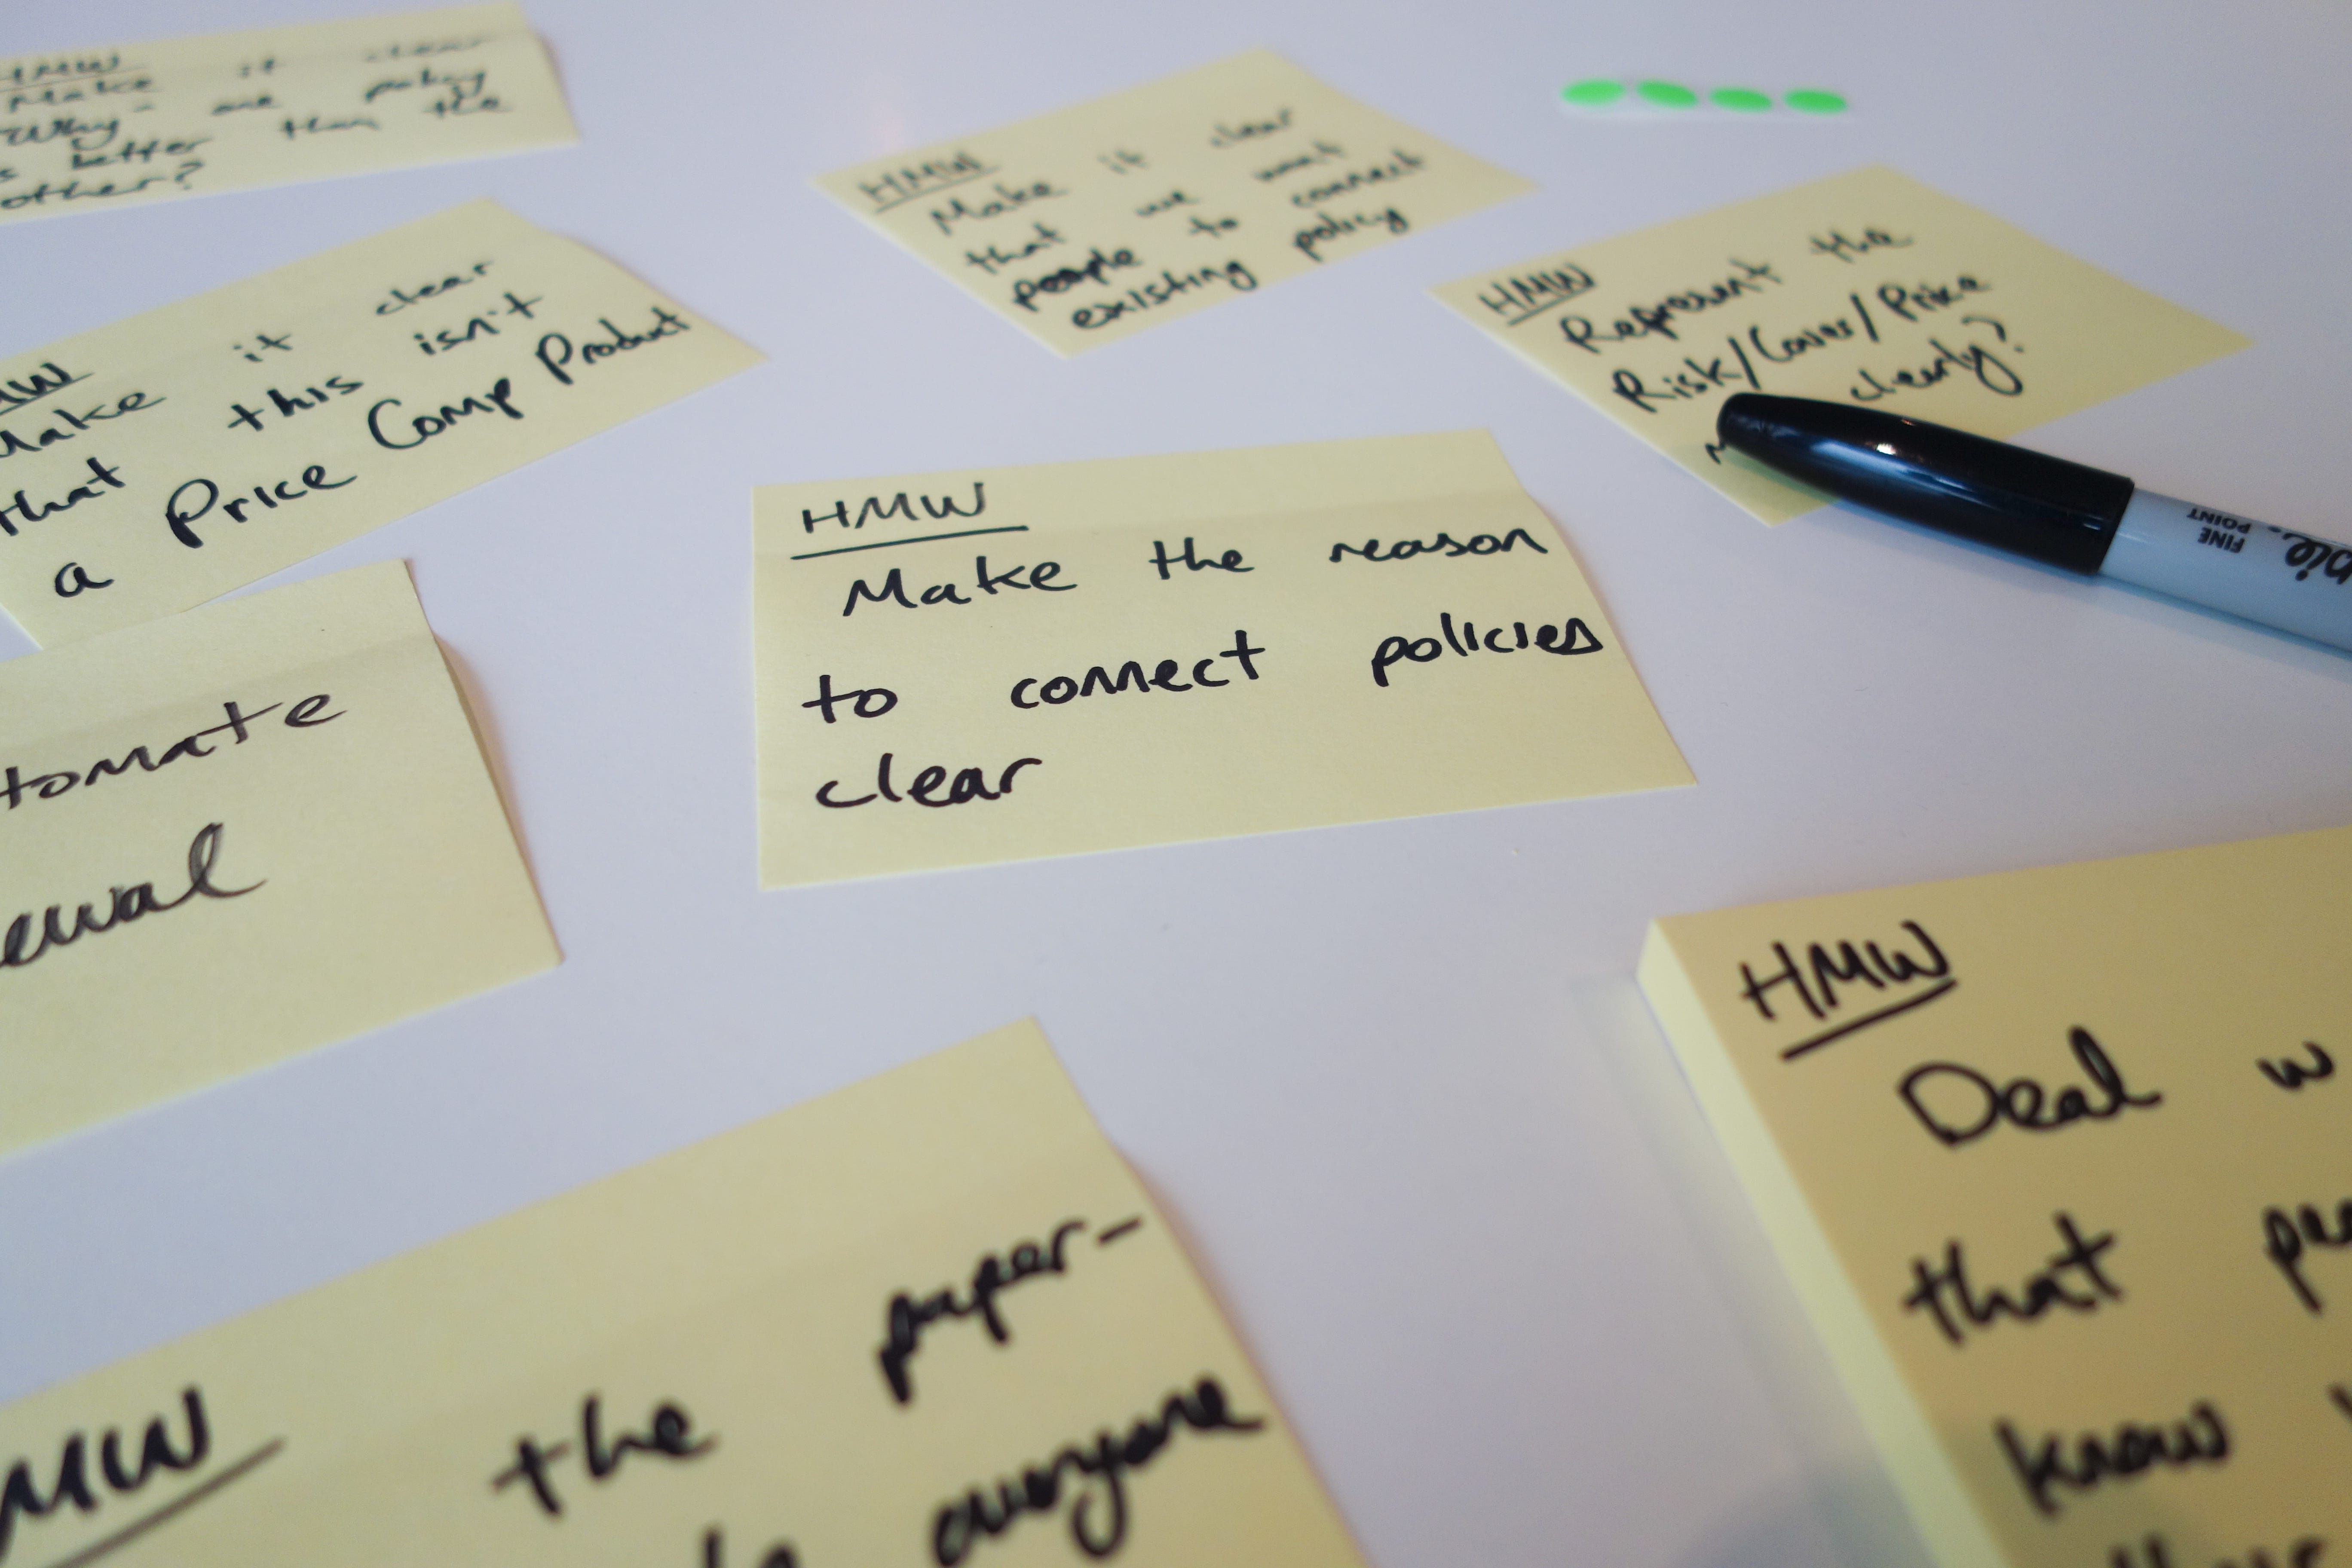 HMW
Make it clear
Why one policy
is better than the
other?
HMW
Make it clear
that we want
people to connect
existing policy
HMW
Represent the
Risk/Cover/Price
clearly?
Make it clear
that this isn't
a Price Comp Product
HMW
Make the reason
to connect policies
clear
FINE
POINT
HMW
Deal w
that
know
MW
the paper-
anyone